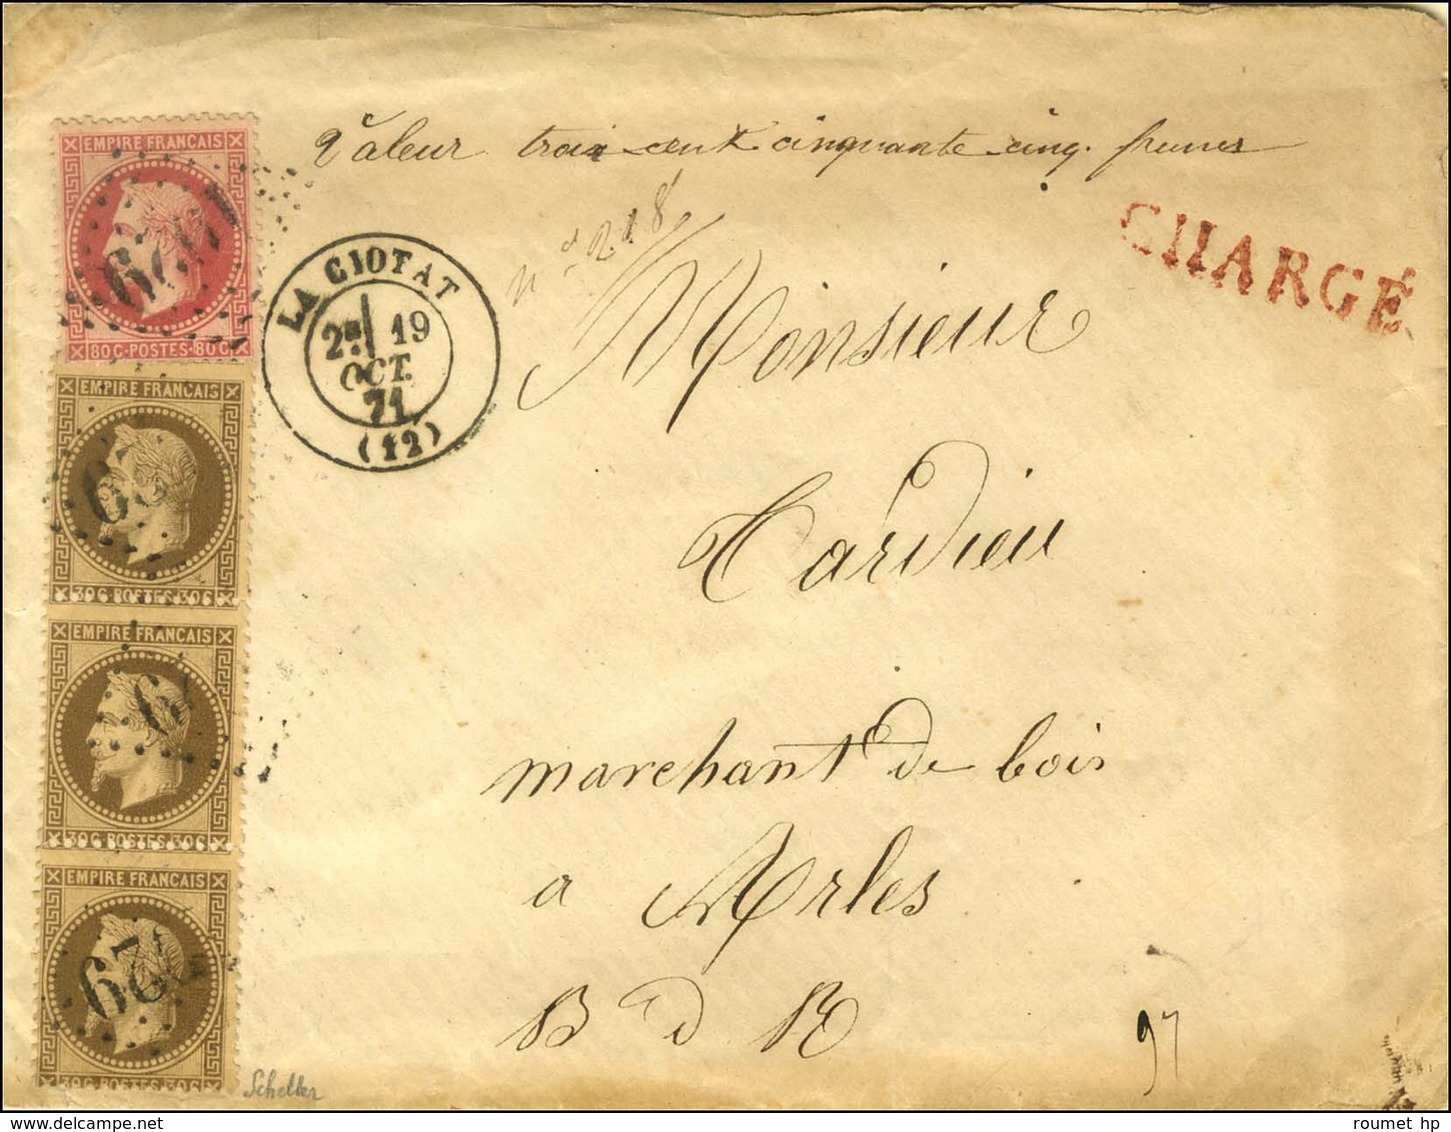 Valeur trois cent cinquante cinq francs
CHARGÉ
EMPIRE FRANCAIS
80 C·POSTES·80 C
LA CIOTAT
2E 19
OCT.
71
(12)
n° 218
Monsieur
Tardieu
marchant de bois
a Arles
B d R
97
EMPIRE FRANCAIS
30 C POSTES 30 C
EMPIRE FRANCAIS
30 C POSTES 30 C
EMPIRE FRANCAIS
30 C POSTES 30 C
Scheller
www.delcampe.net
roumet hp